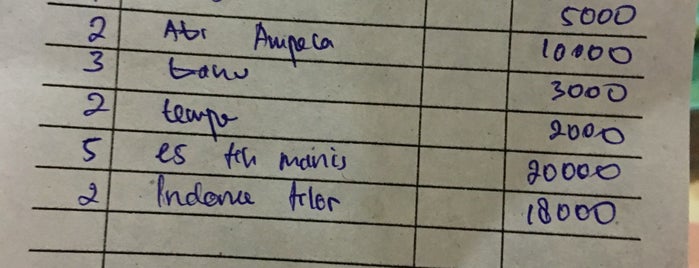 5000
2 Ati Ampela 10000
3 tahu 3000
2 tempe 2000
5 es teh manis 20000
2 Indomie telor 18000